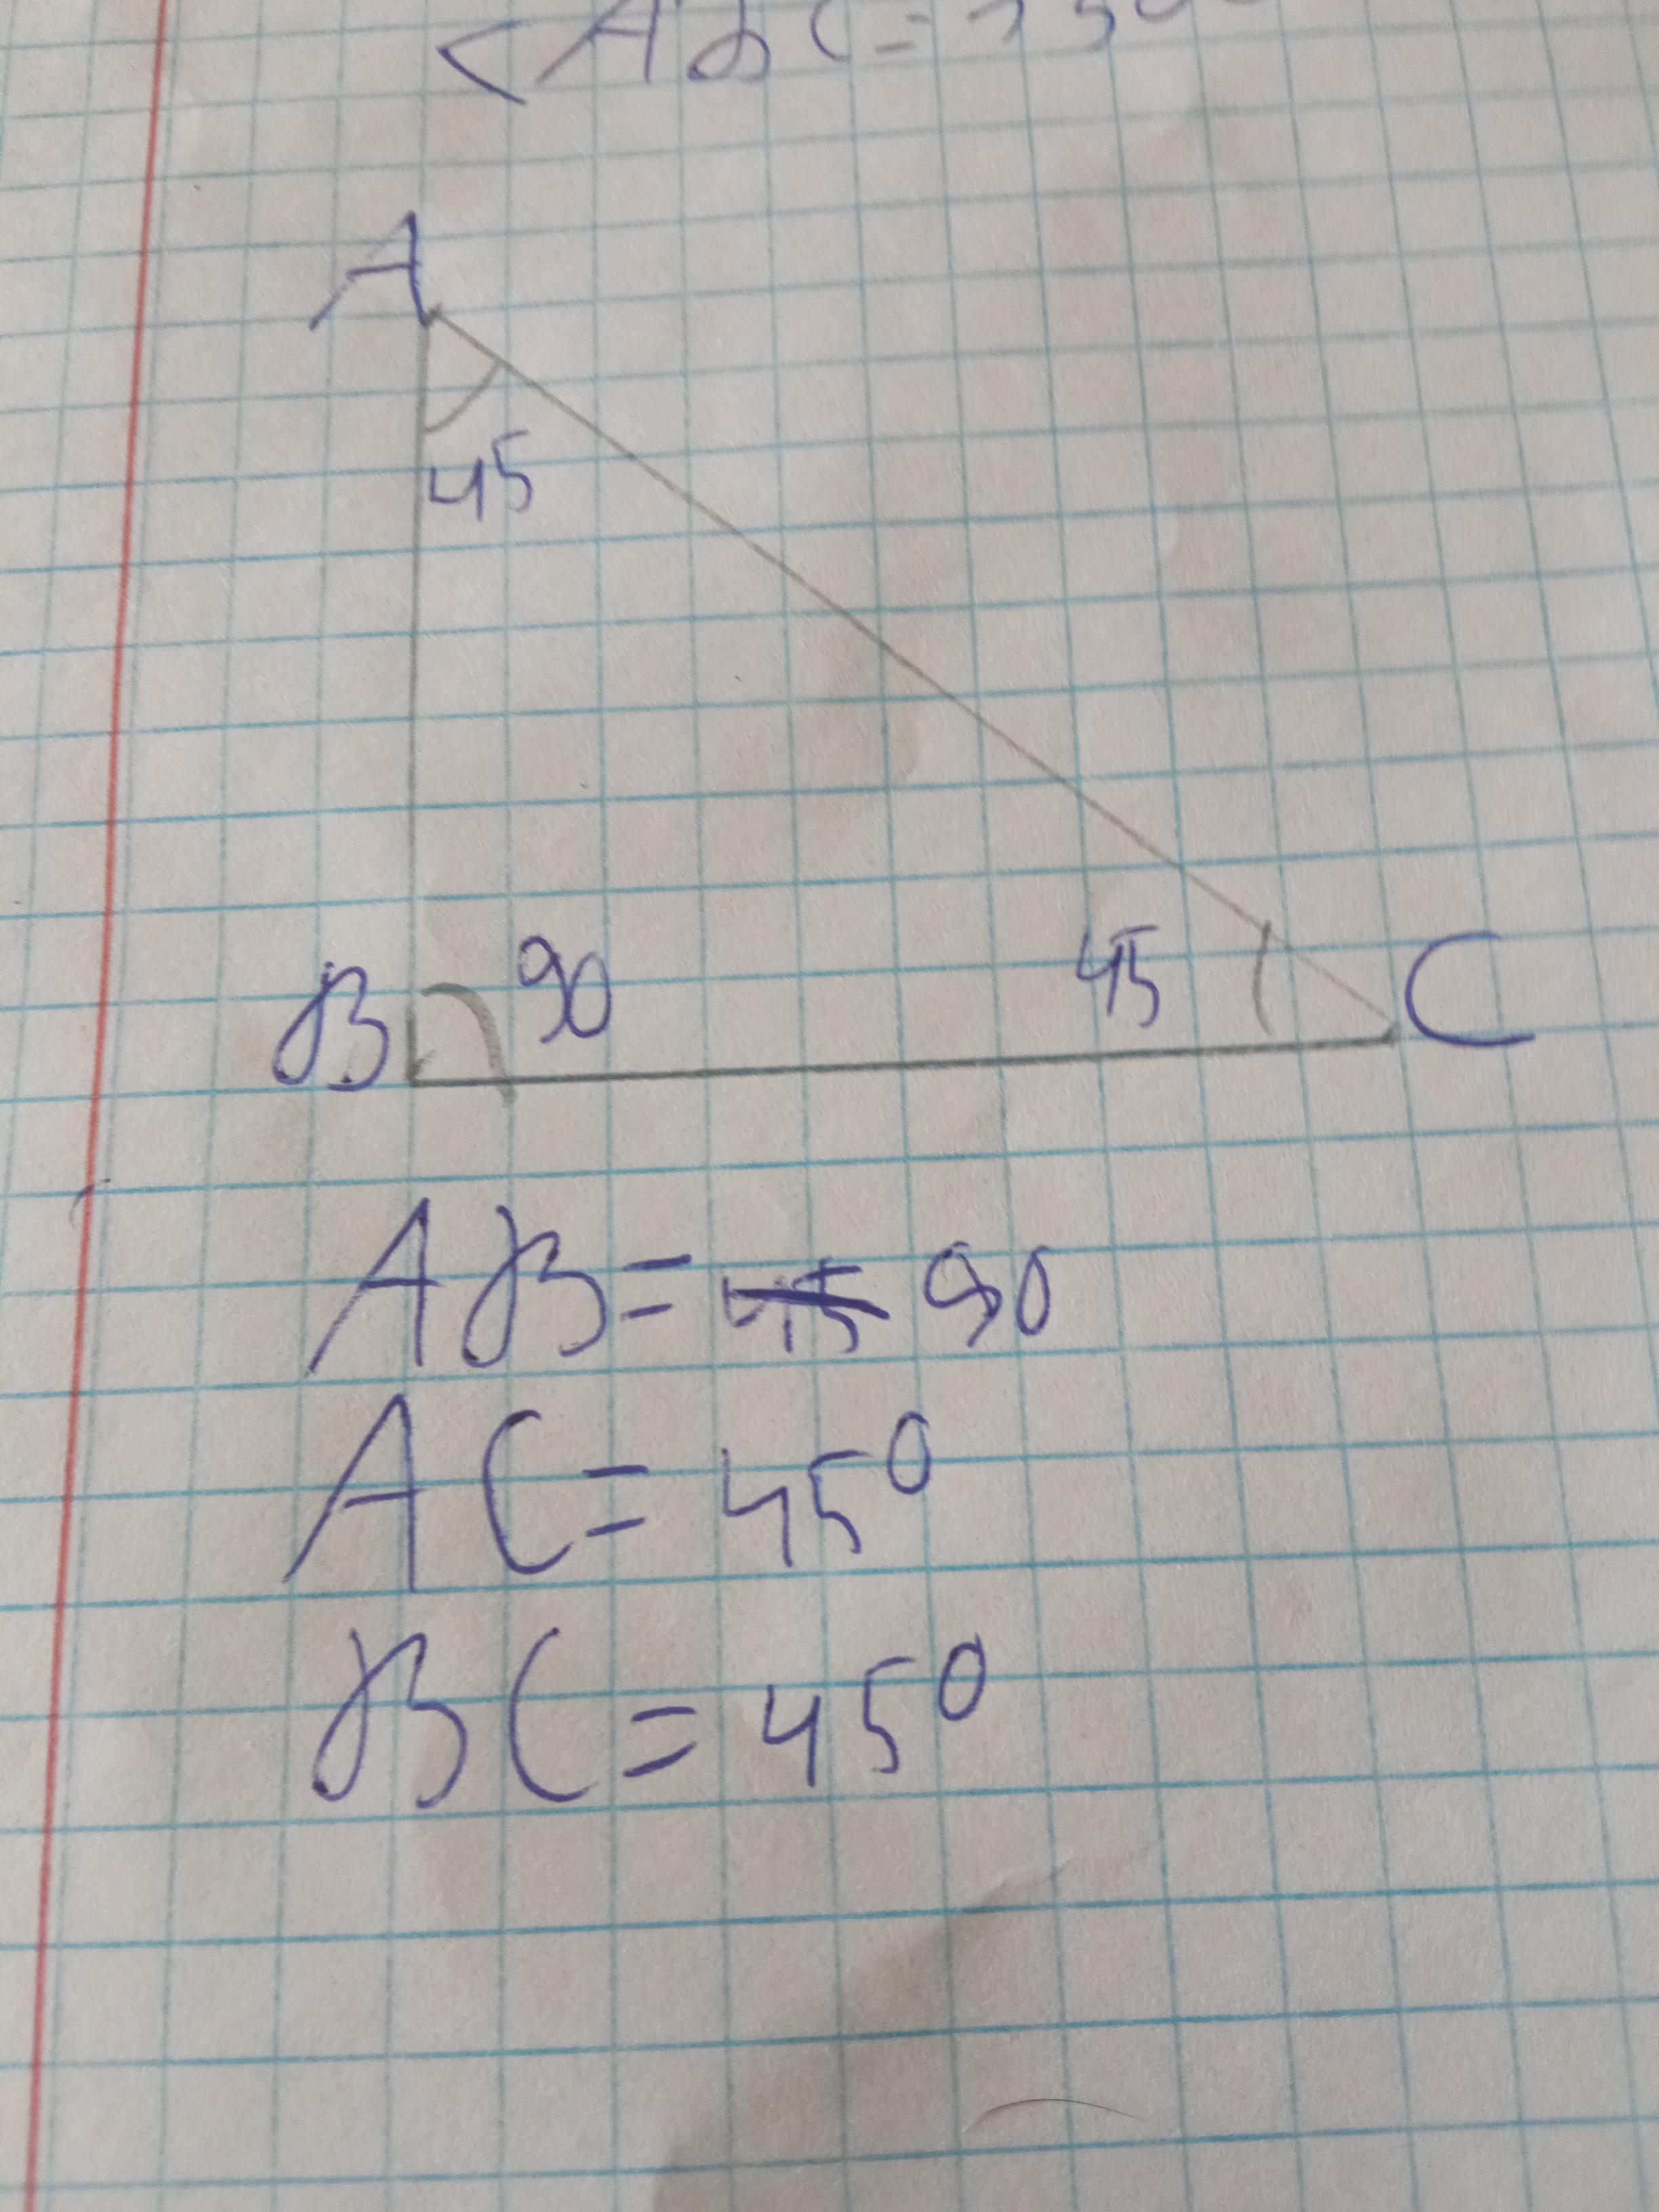 A
45
B 90 45 C
AB= 45 90
AC=45⁰
BC=45⁰